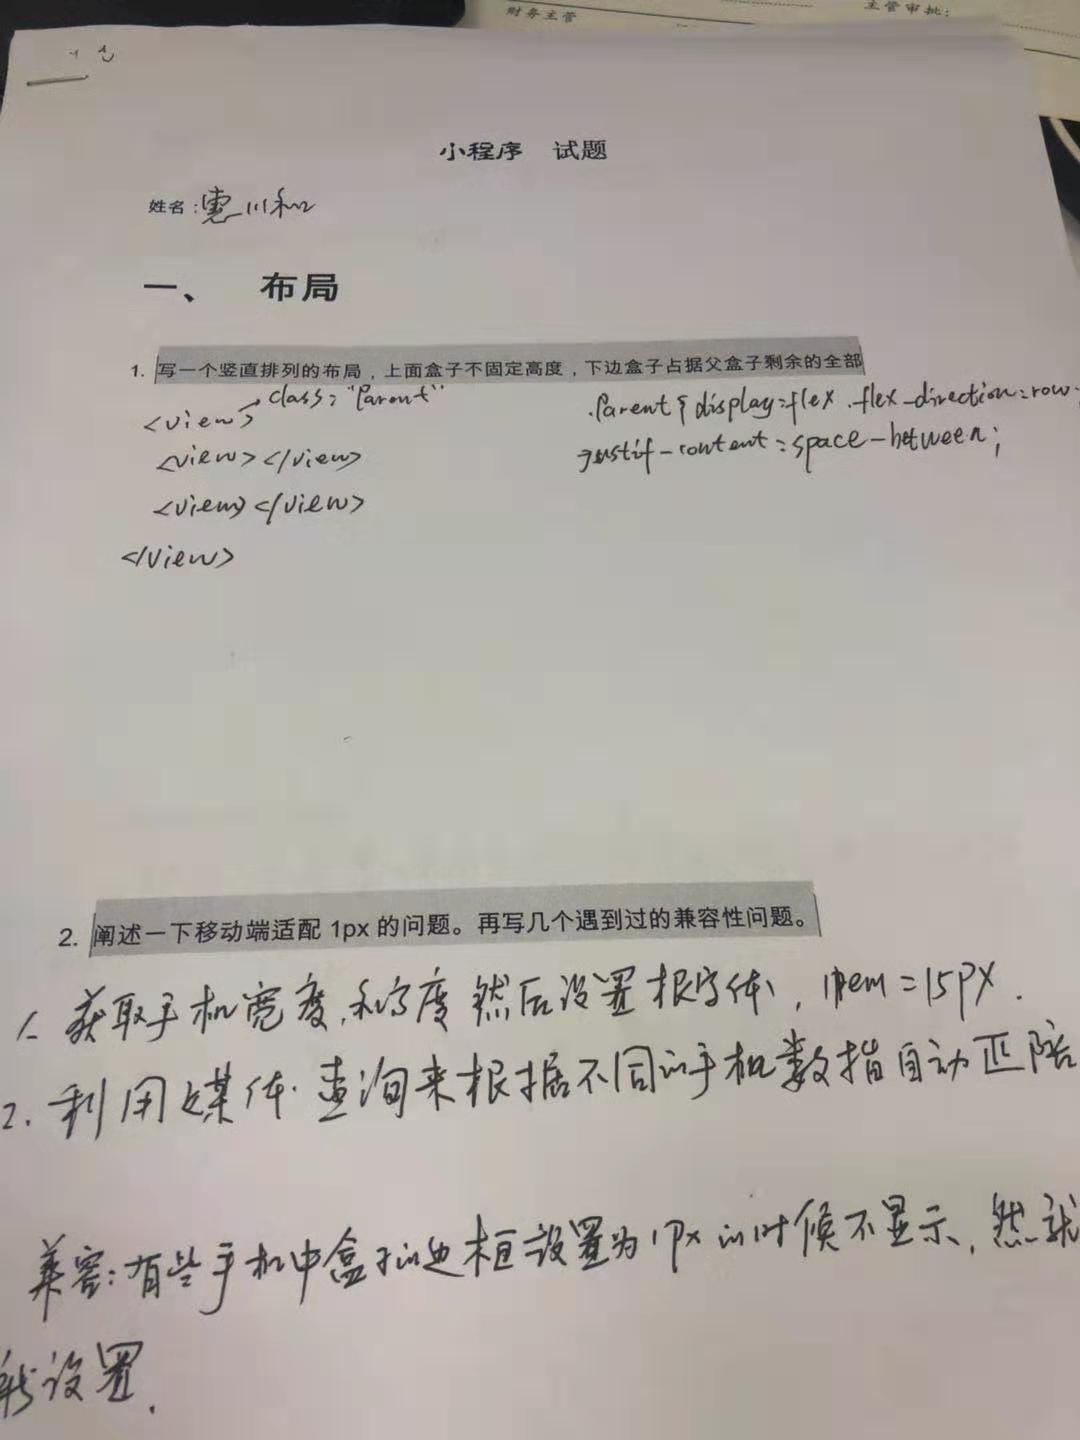 财务主管
主管审批:
小程序 试题
姓名:惠川和
一、 布局
1. 写一个竖直排列的布局，上面盒子不固定高度，下边盒子占据父盒子剩余的全部
<view> class="Parent"
<view></view>
<view></view>
</view>
.Parent{display=flex.flex-direction=row
justif-content=space-between;
2. 阐述一下移动端适配 1px 的问题。再写几个遇到过的兼容性问题。
1. 获取手机宽度,和高度 然后设置根字体, 1rem=15px.
2. 利用媒体查询来根据不同的手机数指自动匹陪
兼容:有些手机中盒子的边框设置为1Px的时候不显示,然就
设置.